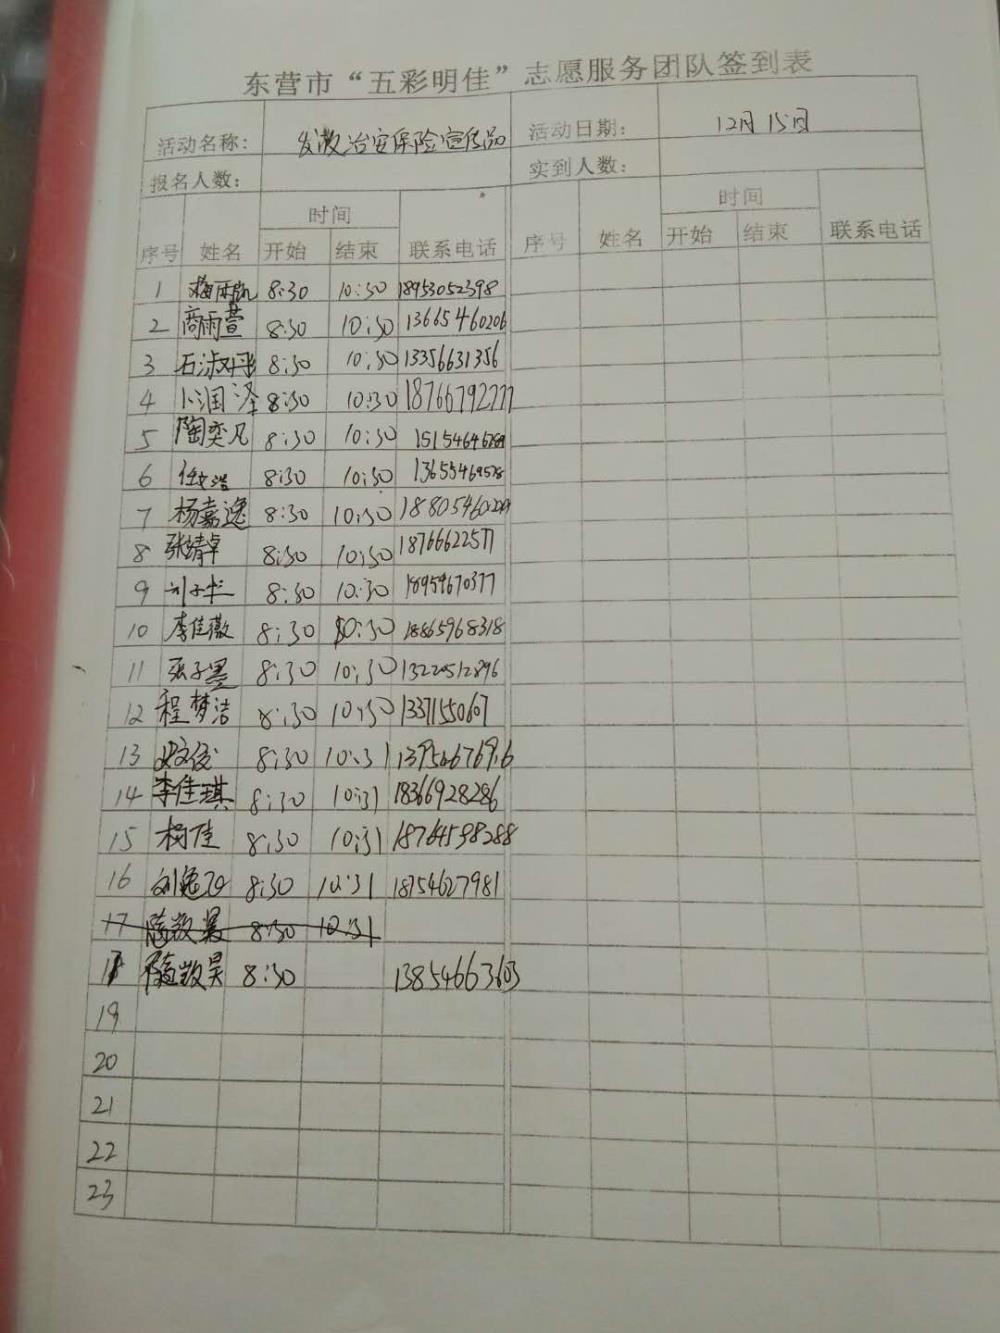 东营市“五彩明佳”志愿服务团队签到表
活动名称： 发放治安保险宣传品 活动日期： 12月15日
报名人数： 实到人数：
序号 姓名 时间 联系电话 序号 姓名 时间 联系电话
开始 结束 开始 结束
1 8:30 10:30 18953052398
2 商雨萱 8:30 10:30 13665460206
3 石淑丹 8:30 10:30 13356631356
4 卜润泽 8:30 10:30 18766792777
5 陶奕凡 8:30 10:30
6 任文浩 8:30 10:30
7 杨嘉逸 8:30 10:30
8 张靖卓 8:30 10:30 18766622577
9 8:30 10:30 18959670377
10 李佳薇 8:30 10:30 18865968318
11 张子墨 8:30 10:30 13220512896
12 程梦洁 8:30 10:30 13371550607
13 8:30 10:31
14 李佳琪 8:30 10:31 18366928286
15 杨佳 8:30 10:31 18764598288
16 8:30 10:31 18754627981
17 8:30 10:31
8:30 13854663603
19
20
21
22
23